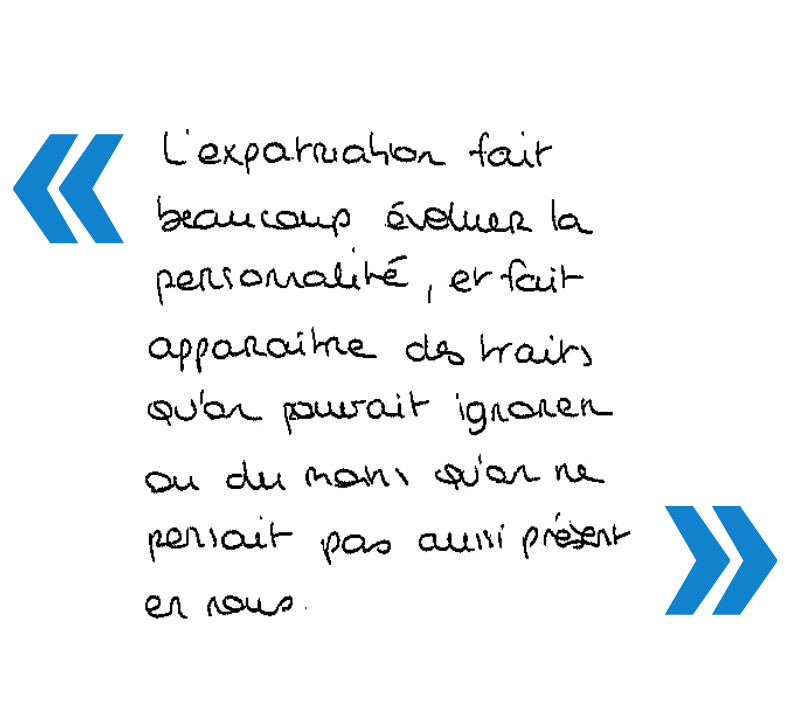 « L'expatriation fait
beaucoup évoluer la
personnalité, et fait
apparaitre des traits
qu'on pouvait ignorer
ou du moins qu'on ne
pensait pas aussi présent
en nous. »